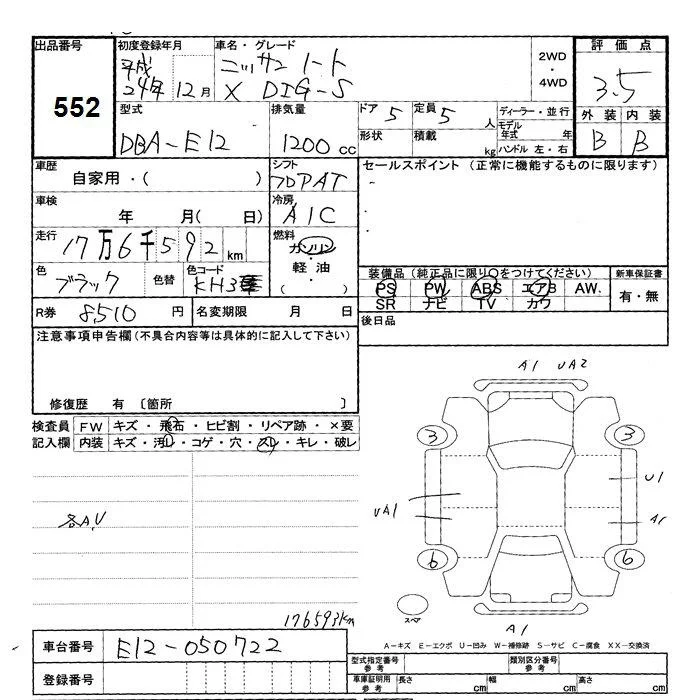 出品番号 初度登録年月 車名・グレード 2WD 評価点
552 平成24年12月 ニッサンノート X DIG-S 4WD 3.5
型式 排気量 ドア 5 定員 5 人 ディーラー・並行 外装 内装
DBA-E12 1200 cc 形状 積載 kg モデル年式 年 ハンドル 左・右 B B
車歴 自家用・( ) シフト フロアAT セールスポイント (正常に機能するものに限ります)
車検 年 月( 日) 冷房 A/C
走行 17万6千592 km 燃料 ガソリン・軽油・( )
色 ブラック 色替 色コード KH3 装備品(純正品に限り○をつけてください) 新車保証書
PS PW ABS エアB AW. 有・無
SR ナビ TV カワ
R券 8510 円 名変期限 月 日 後日品
注意事項申告欄(不具合内容等は具体的に記入して下さい)
修復歴 有 〔箇所 〕
検査員 FW キズ・飛石・ヒビ割・リペア跡・×要
記入欄 内装 キズ・汚レ・コゲ・穴・スレ・キレ・破レ
A1 UA2
3 3
U1
各AU UA1 A1
6 6
176593km スペア A1
車台番号 E12-050722 A-キズ E-エクボ U-凹み W-補修跡 S-サビ C-腐食 XX-交換済
型式指定番号 参考 類別区分番号 参考
登録番号 車庫証明用 参考 長さ cm 幅 cm 高さ cm